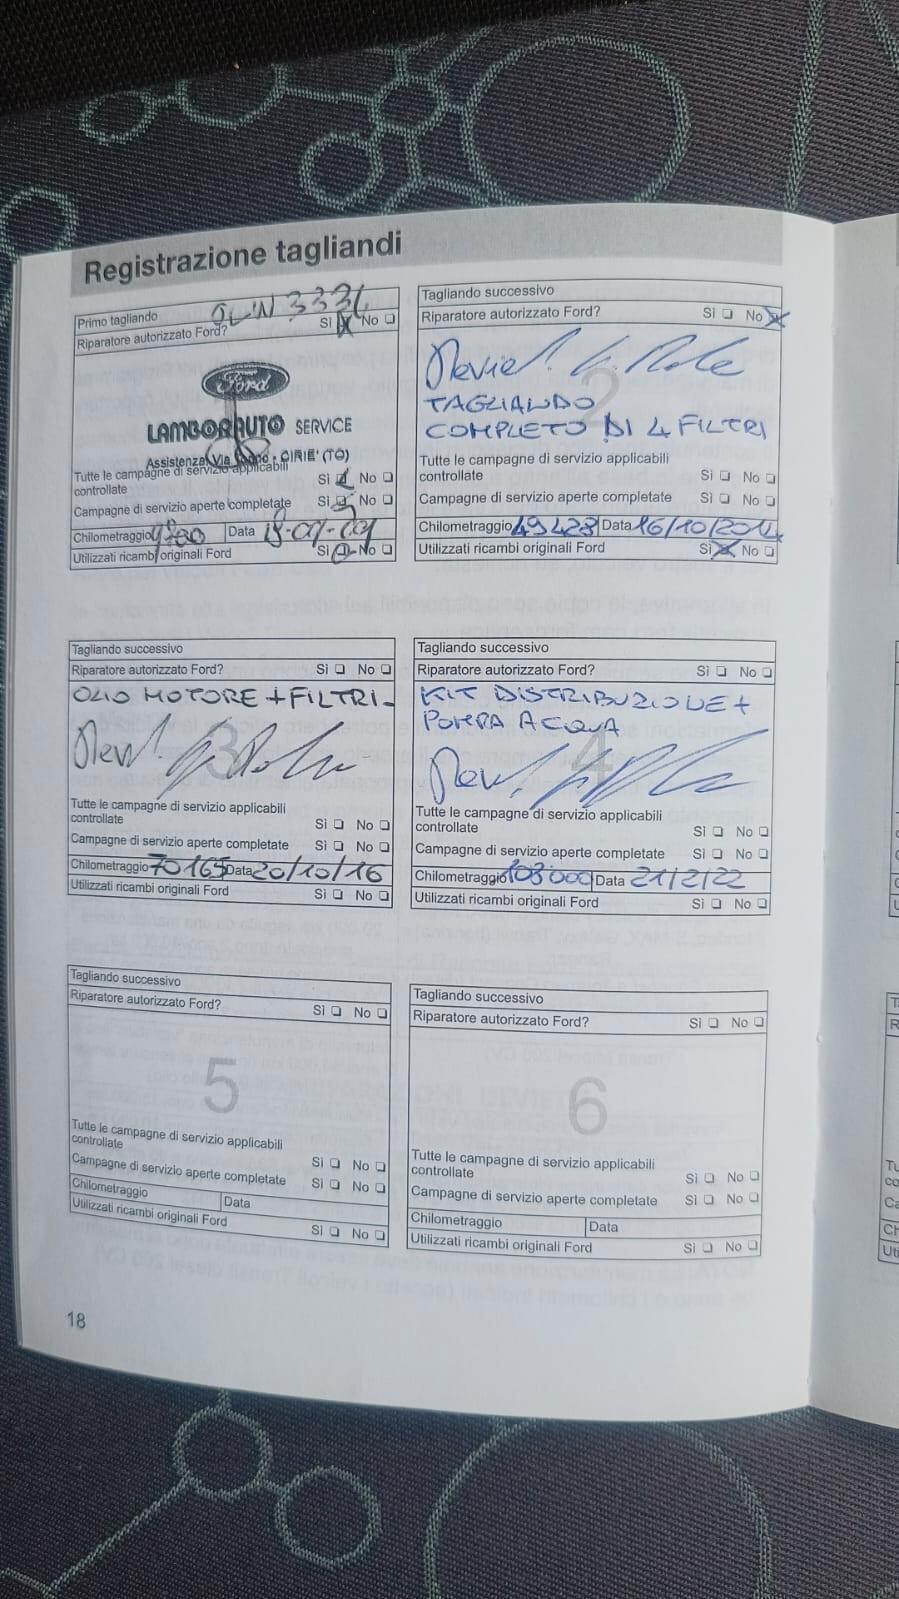 Registrazione tagliandi
Primo tagliando
Riparatore autorizzato Ford? Sì No
Ford
LAMBORAUTO SERVICE
Assistenza: Via CIRIE' (TO)
Tutte le campagne di servizio applicabili
controllate Sì No
Campagne di servizio aperte completate Sì No
Chilometraggio Data
Utilizzati ricambi originali Ford Sì No
Tagliando successivo
Riparatore autorizzato Ford? Sì No
2
TAGLIANDO
COMPLETO DI 4 FILTRI
Tutte le campagne di servizio applicabili
controllate Sì No
Campagne di servizio aperte completate Sì No
Chilometraggio 49428 Data 16/10/2014
Utilizzati ricambi originali Ford Sì No
Tagliando successivo
Riparatore autorizzato Ford? Sì No
OLIO MOTORE + FILTRI
3
Tutte le campagne di servizio applicabili
controllate Sì No
Campagne di servizio aperte completate Sì No
Chilometraggio 70165 Data 20/10/16
Utilizzati ricambi originali Ford Sì No
Tagliando successivo
Riparatore autorizzato Ford? Sì No
KIT DISTRIBUZIONE +
POMPA ACQUA
4
Tutte le campagne di servizio applicabili
controllate Sì No
Campagne di servizio aperte completate Sì No
Chilometraggio 103000 Data 21/2/22
Utilizzati ricambi originali Ford Sì No
Tagliando successivo
Riparatore autorizzato Ford? Sì No
5
Tutte le campagne di servizio applicabili
controllate Sì No
Campagne di servizio aperte completate Sì No
Chilometraggio Data
Utilizzati ricambi originali Ford Sì No
Tagliando successivo
Riparatore autorizzato Ford? Sì No
6
Tutte le campagne di servizio applicabili
controllate Sì No
Campagne di servizio aperte completate Sì No
Chilometraggio Data
Utilizzati ricambi originali Ford Sì No
18